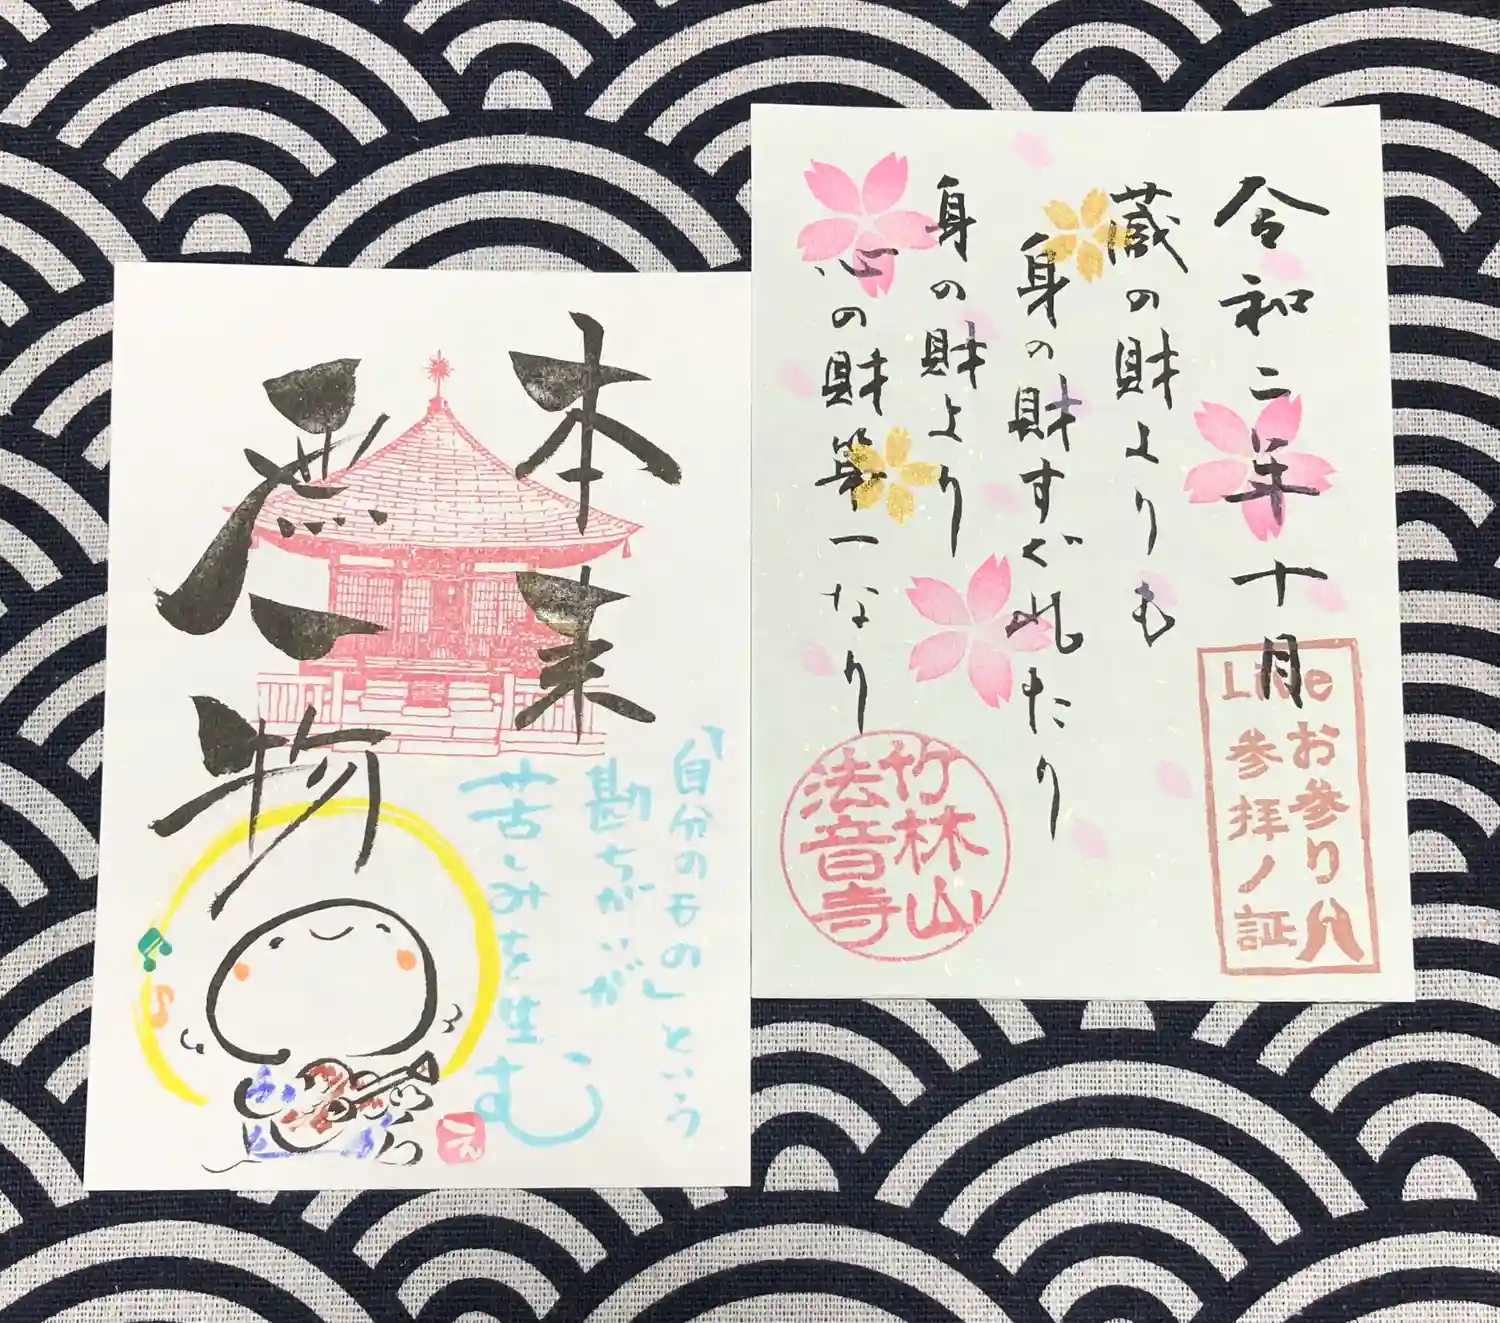 令和二年十月
蔵の財よりも
身の財すぐれたり
身の財より
心の財第一なり
Live
お参り
参拝ノ証
竹林山
法音寺
本来
無一
物
「自分のもの」という
勘ちがいが
苦しみを生む
え